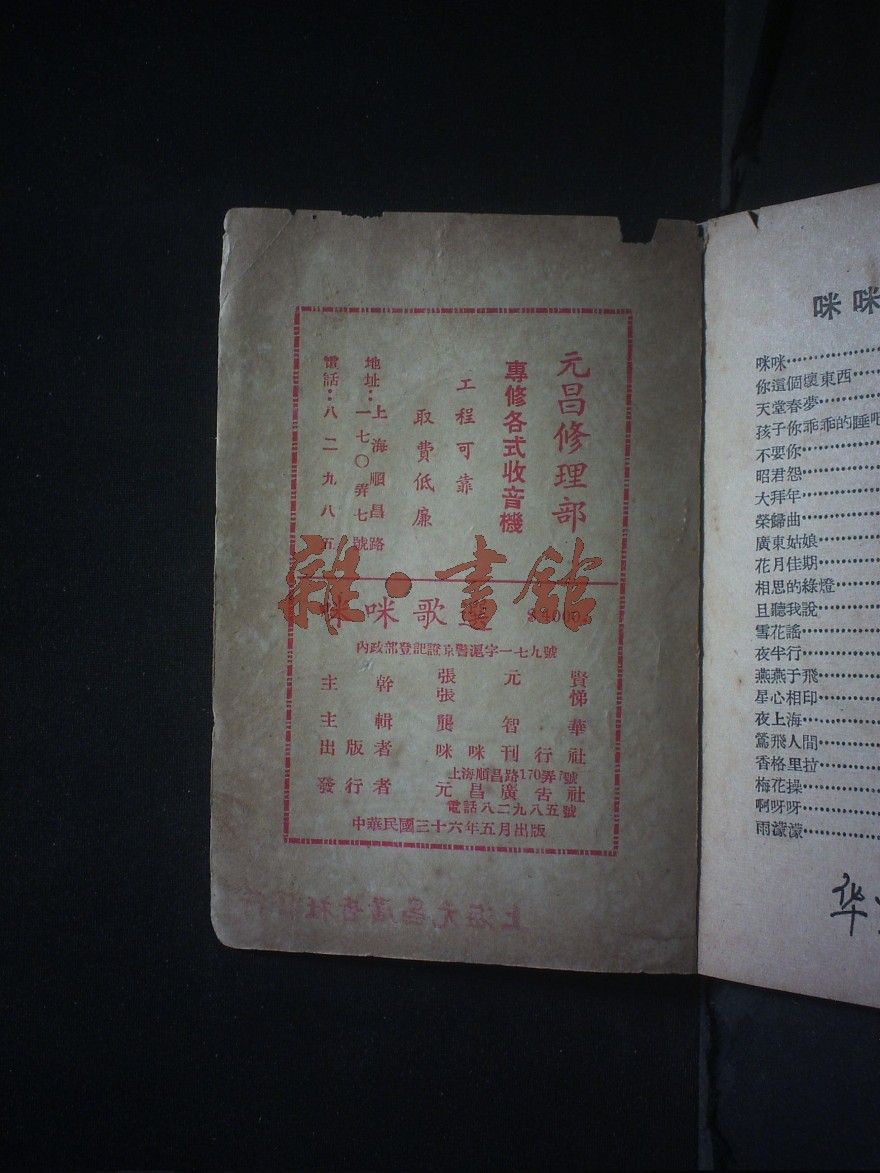 元昌修理部
專修各式收音機
工程可靠
取費低廉
地址：上海順昌路
一七〇弄七號
電話：八二九八五
咪咪歌選
內政部登記證京警滬字一七九號
主幹 張元賢
張悌
主輯 龔智華
出版者 咪咪刊行社
上海順昌路170弄7號
發行者 元昌廣告社
電話八二九八五號
中華民國三十六年五月出版
雜·書館
上海元昌廣告社
咪咪
咪咪
你這個壞東西
天堂春夢
孩子你乖乖的睡吧
不要你
昭君怨
大拜年
榮歸曲
廣東姑娘
花月佳期
相思的綠燈
且聽我說
雪花謠
夜半行
燕燕于飛
星心相印
夜上海
鶯飛人間
香格里拉
梅花操
啊呀呀
雨濛濛
华